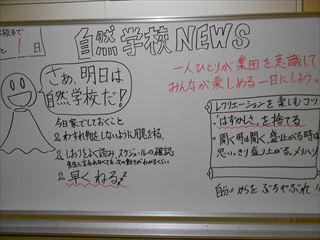 1日
自然学校NEWS
一人ひとりが集団を意識して
みんなが楽しめる一日にしよう。
さぁ、明日は
自然学校だ!
今日家でしておくこと
1. わすれ物をしないように用意する。
2. しおりをよく読み、スケジュールの確認
先生に言われなくても、次の動きがわかるくらい
3. 早くねるzz
レクリエーションを楽しむコツ
・"はずかしさ"を捨てる
・聞く時は聞く、盛り上がる時は
思いっきり盛り上がる。メリハリ
自分のからをぶちやぶれ!!